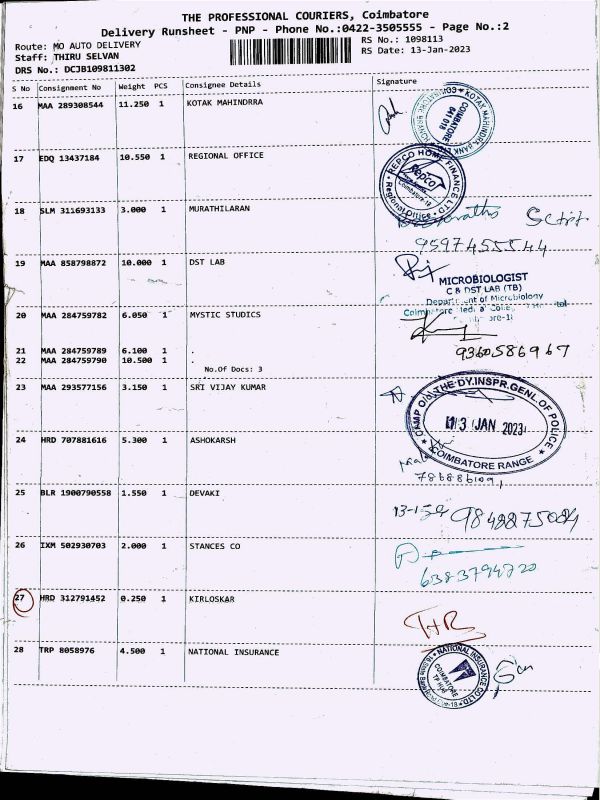 THE PROFESSIONAL COURIERS, Coimbatore
Delivery Runsheet - PNP - Phone No.:0422-3505555 - Page No.:2
Route: MO AUTO DELIVERY
Staff: THIRU SELVAN
DRS No.: DCJB109811302
RS No.: 1098113
RS Date: 13-Jan-2023
S No Consignment No Weight PCS Consignee Details Signature
16 MAA 289308544 11.250 1 KOTAK MAHINDRRA
KOTAK MAHINDRA BANK
COIMBATORE
641 018
17 EDQ 13437184 10.550 1 REGIONAL OFFICE
REPCO HOME FINANCE LTD
Repco
Coimbatore-18
Regional Office
18 SLM 311693133 3.000 1 MURATHILARAN
9597455544
19 MAA 858798872 10.000 1 DST LAB
MICROBIOLOGIST
C & DST LAB (TB)
Department of Microbiology
20 MAA 284759782 6.050 1 MYSTIC STUDICS
21 MAA 284759789 6.100 1 .
22 MAA 284759790 10.500 1 .
No.Of Docs: 3
9360586967
23 MAA 293577156 3.150 1 SRI VIJAY KUMAR
CAMP O/o.THE DY.INSPR.GENL.OF POLICE
13 JAN 2023
COIMBATORE RANGE
24 HRD 707881616 5.300 1 ASHOKARSH
25 BLR 1900790558 1.550 1 DEVAKI
26 IXM 502930703 2.000 1 STANCES CO
6383794720
27 HRD 312791452 0.250 1 KIRLOSKAR
28 TRP 8058976 4.500 1 NATIONAL INSURANCE
NATIONAL INSURANCE CO LTD
COIMBATORE